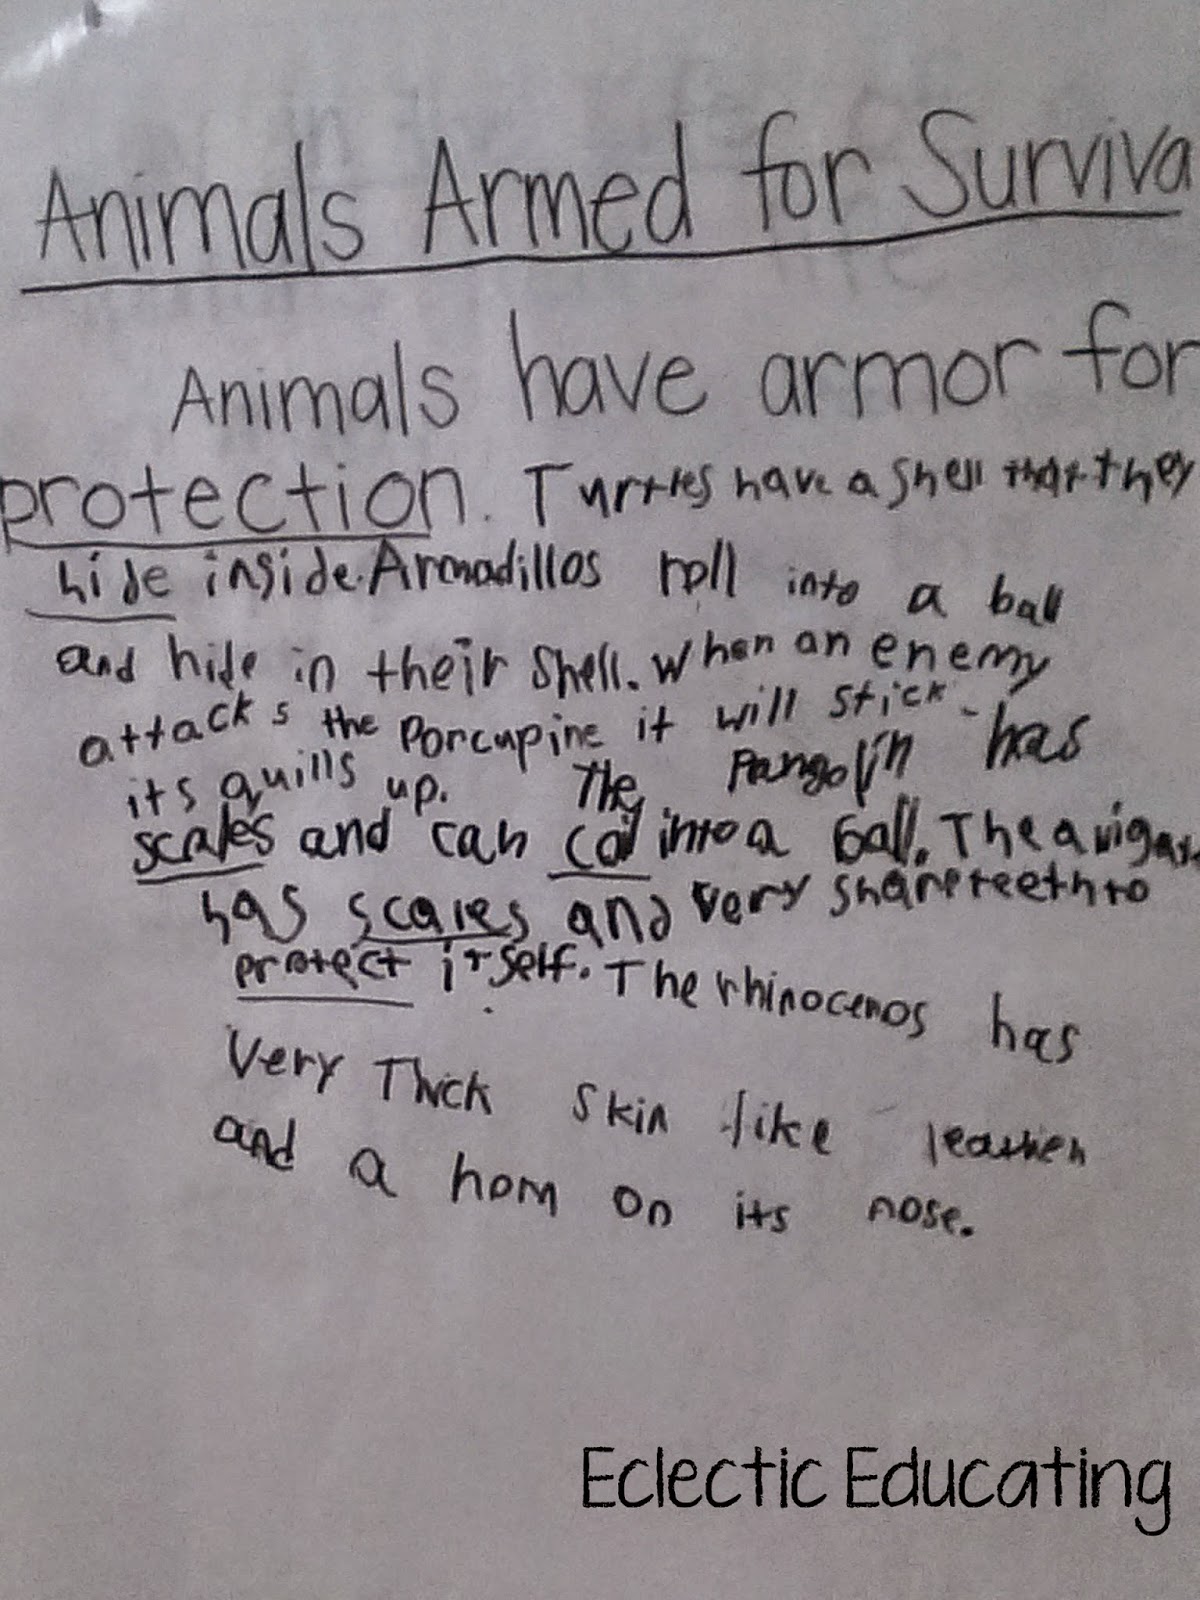 Animals Armed for Surviva
Animals have armor for
protection. Turtles have a shell that they
hide inside. Armadillos roll into a ball
and hide in their shell. When an enemy
attacks the Porcupine it will stick
its quills up. The Pangolin has
scales and can coil into a ball. The
has scales and very sharp teeth to
protect itself. The rhinoceros has
Very Thick skin like leather
and a horn on its nose.
Eclectic Educating